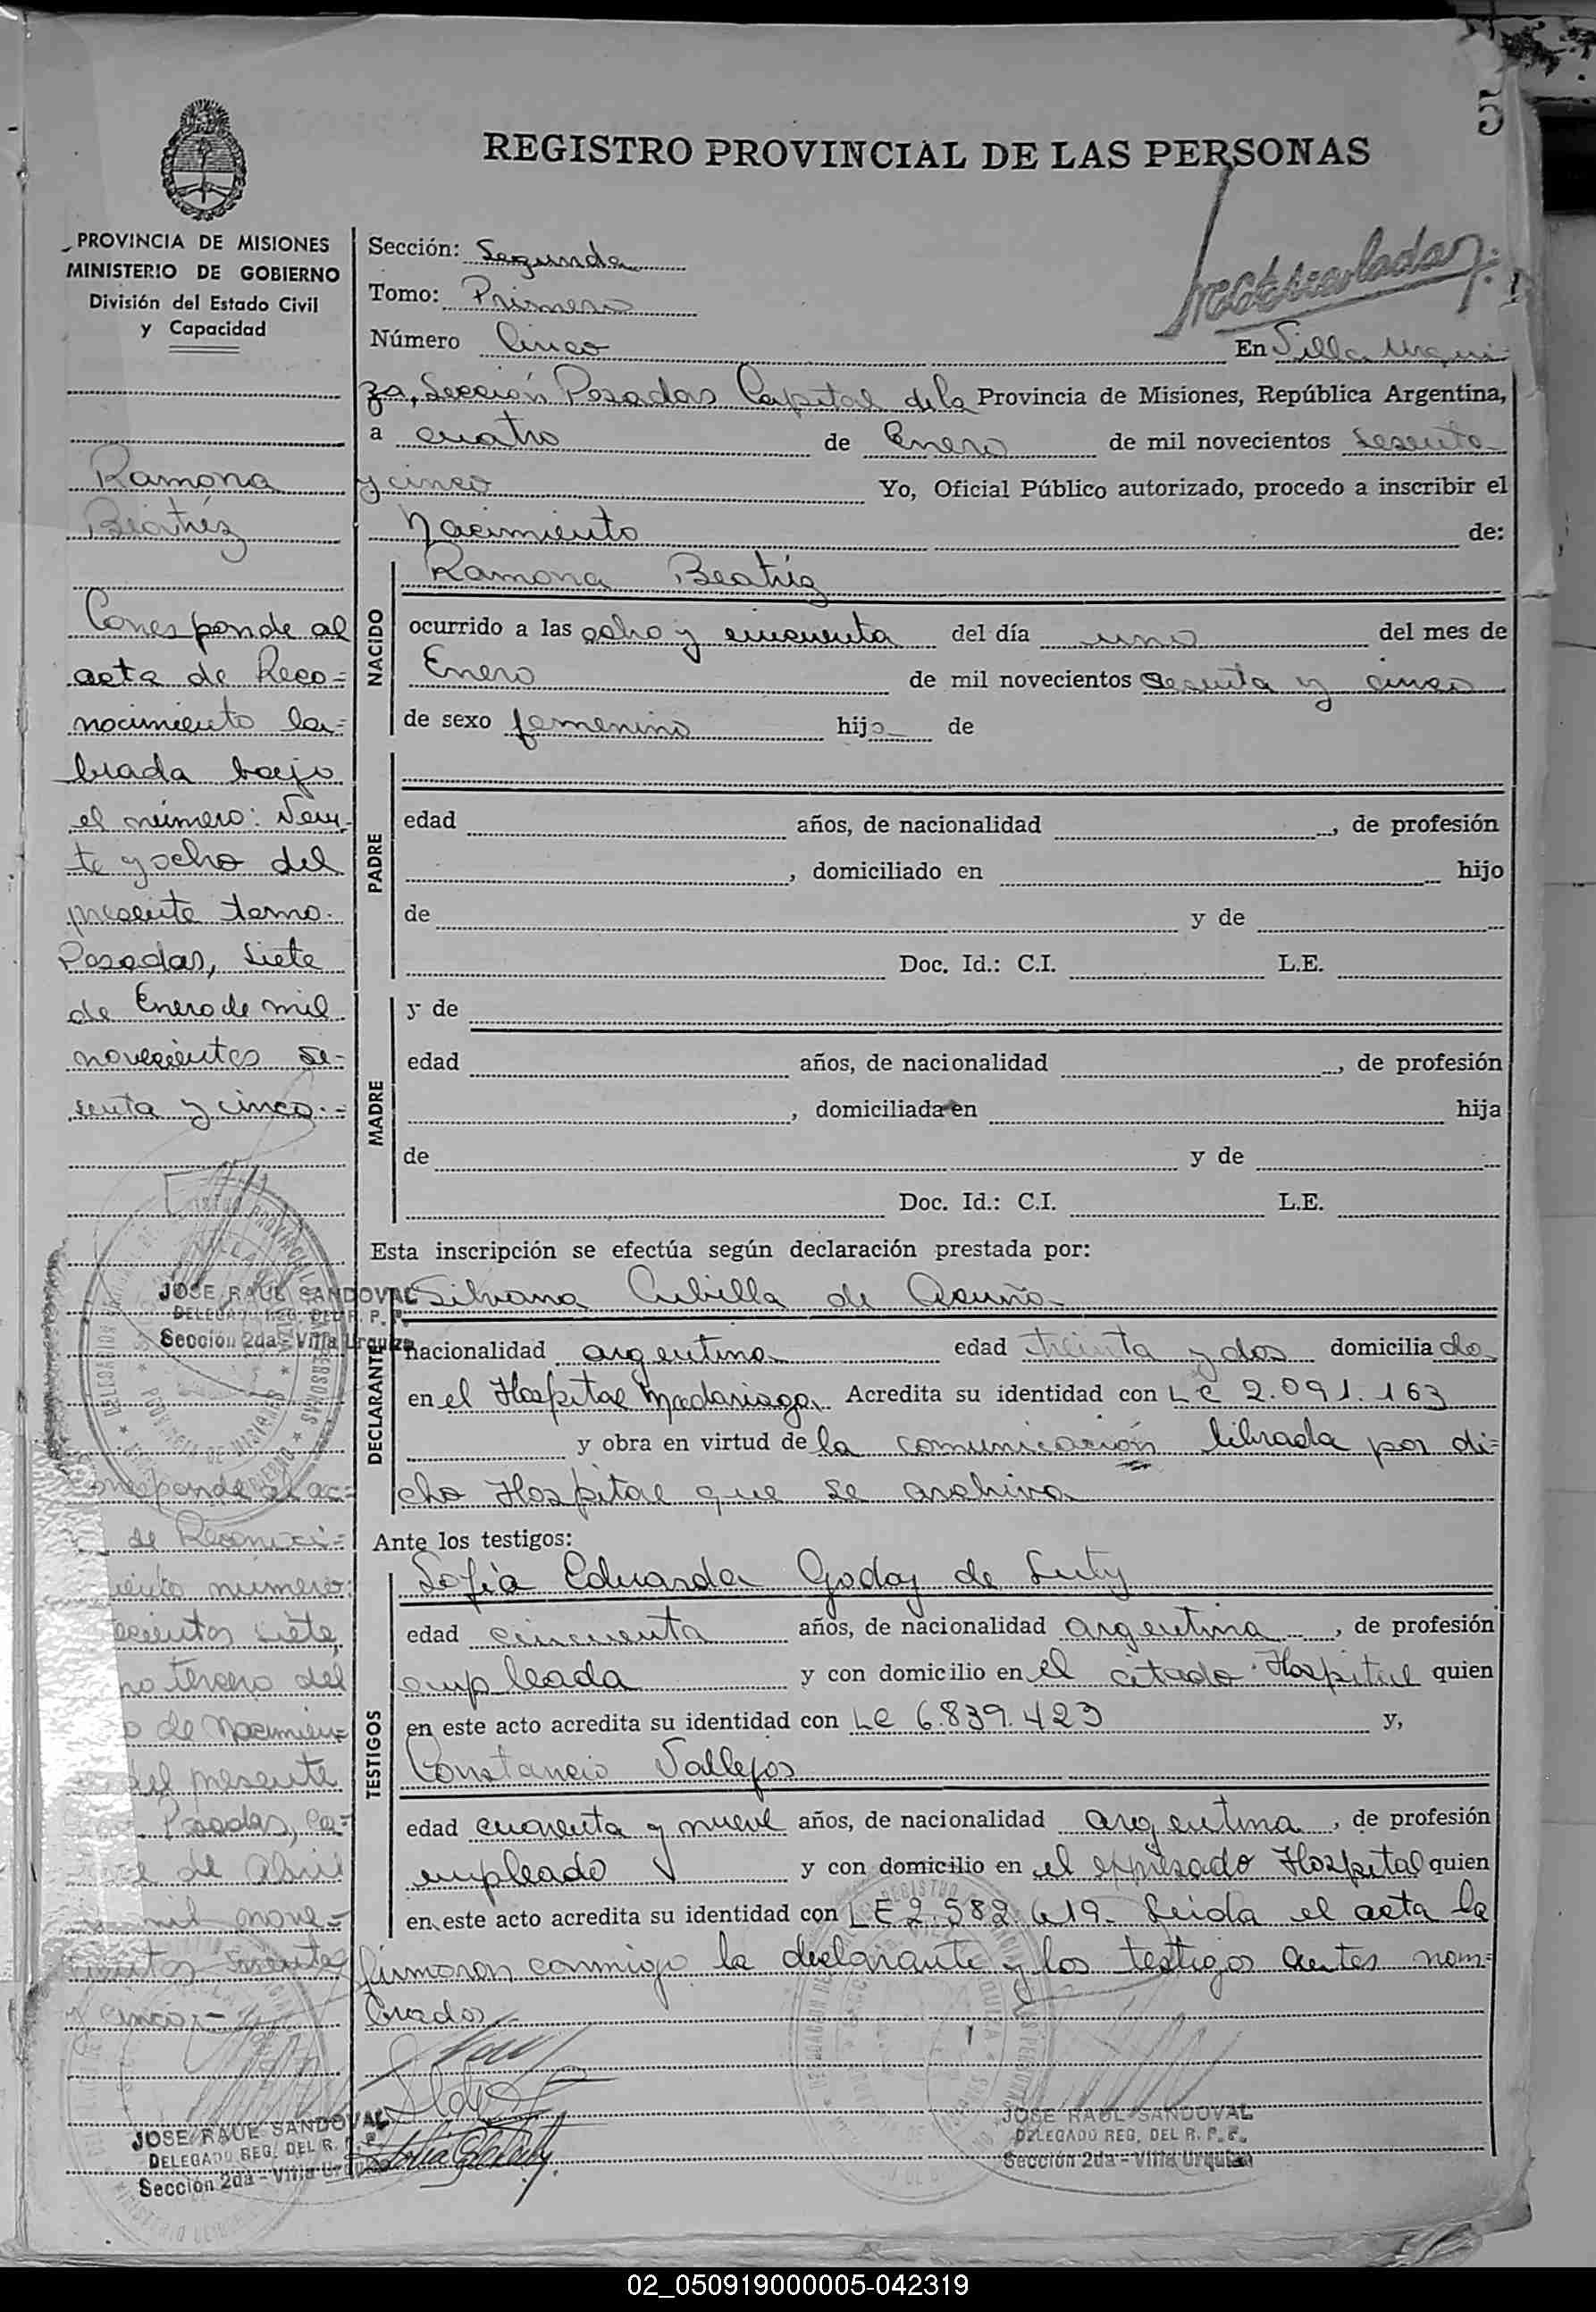 5
REGISTRO PROVINCIAL DE LAS PERSONAS
PROVINCIA DE MISIONES
MINISTERIO DE GOBIERNO
División del Estado Civil
y Capacidad
Ramona
Beatriz
Corresponde al
acta de Reco=
nocimiento la=
brada bajo
el número: Vein-
te y ocho del
presente tomo.
Posadas, siete
de Enero de mil
novecientos se-
senta y cinco.=
JOSE RAUL SANDOVAL
DELEGADO REG. DEL R. P. P.
Sección 2da - Villa Urquiza
Corresponde al ac=
de Reconoci=
miento número:
siete,
tercero del
de Nacimien=
del presente
Posadas,
de Abril
mil nove=
cientos sesenta
y cinco.-
JOSE RAUL SANDOVAL
DELEGADO REG. DEL R. P. P.
Sección 2da - Villa Urquiza
Sección: Segunda
Tomo: Primero
Número Cinco En Villa Urqui-
za, Sección Posadas Capital de la Provincia de Misiones, República Argentina,
a cuatro de Enero de mil novecientos sesenta
y cinco Yo, Oficial Público autorizado, procedo a inscribir el
Nacimiento de:
NACIDO
Ramona Beatriz
ocurrido a las ocho y cincuenta del día uno del mes de
Enero de mil novecientos sesenta y cinco
de sexo femenino hija de
PADRE
edad años, de nacionalidad , de profesión
, domiciliado en hijo
de y de
Doc. Id.: C.I. L.E.
MADRE
y de
edad años, de nacionalidad , de profesión
, domiciliada en hija
de y de
Doc. Id.: C.I. L.E.
Esta inscripción se efectúa según declaración prestada por:
DECLARANTE
Silvana Cubilla de Acuña
nacionalidad argentina edad treinta y dos domiciliado
en el Hospital Madariaga. Acredita su identidad con LC 2.091.163
y obra en virtud de la comunicación librada por di=
cho Hospital que se archiva
Ante los testigos:
TESTIGOS
Sofía Eduarda Godoy de
edad cincuenta años, de nacionalidad argentina , de profesión
empleada y con domicilio en el citado Hospital quien
en este acto acredita su identidad con LC 6.839.423 y,
Constancio Vallejos
edad cuarenta y nueve años, de nacionalidad argentina , de profesión
empleado y con domicilio en el expresado Hospital quien
en este acto acredita su identidad con LE 2.582.619. Leida el acta la
firmaron conmigo la declarante y los testigos antes nom=
brados
JOSE RAUL SANDOVAL
DELEGADO REG. DEL R. P. P.
Sección 2da - Villa Urquiza
02_050919000005-042319